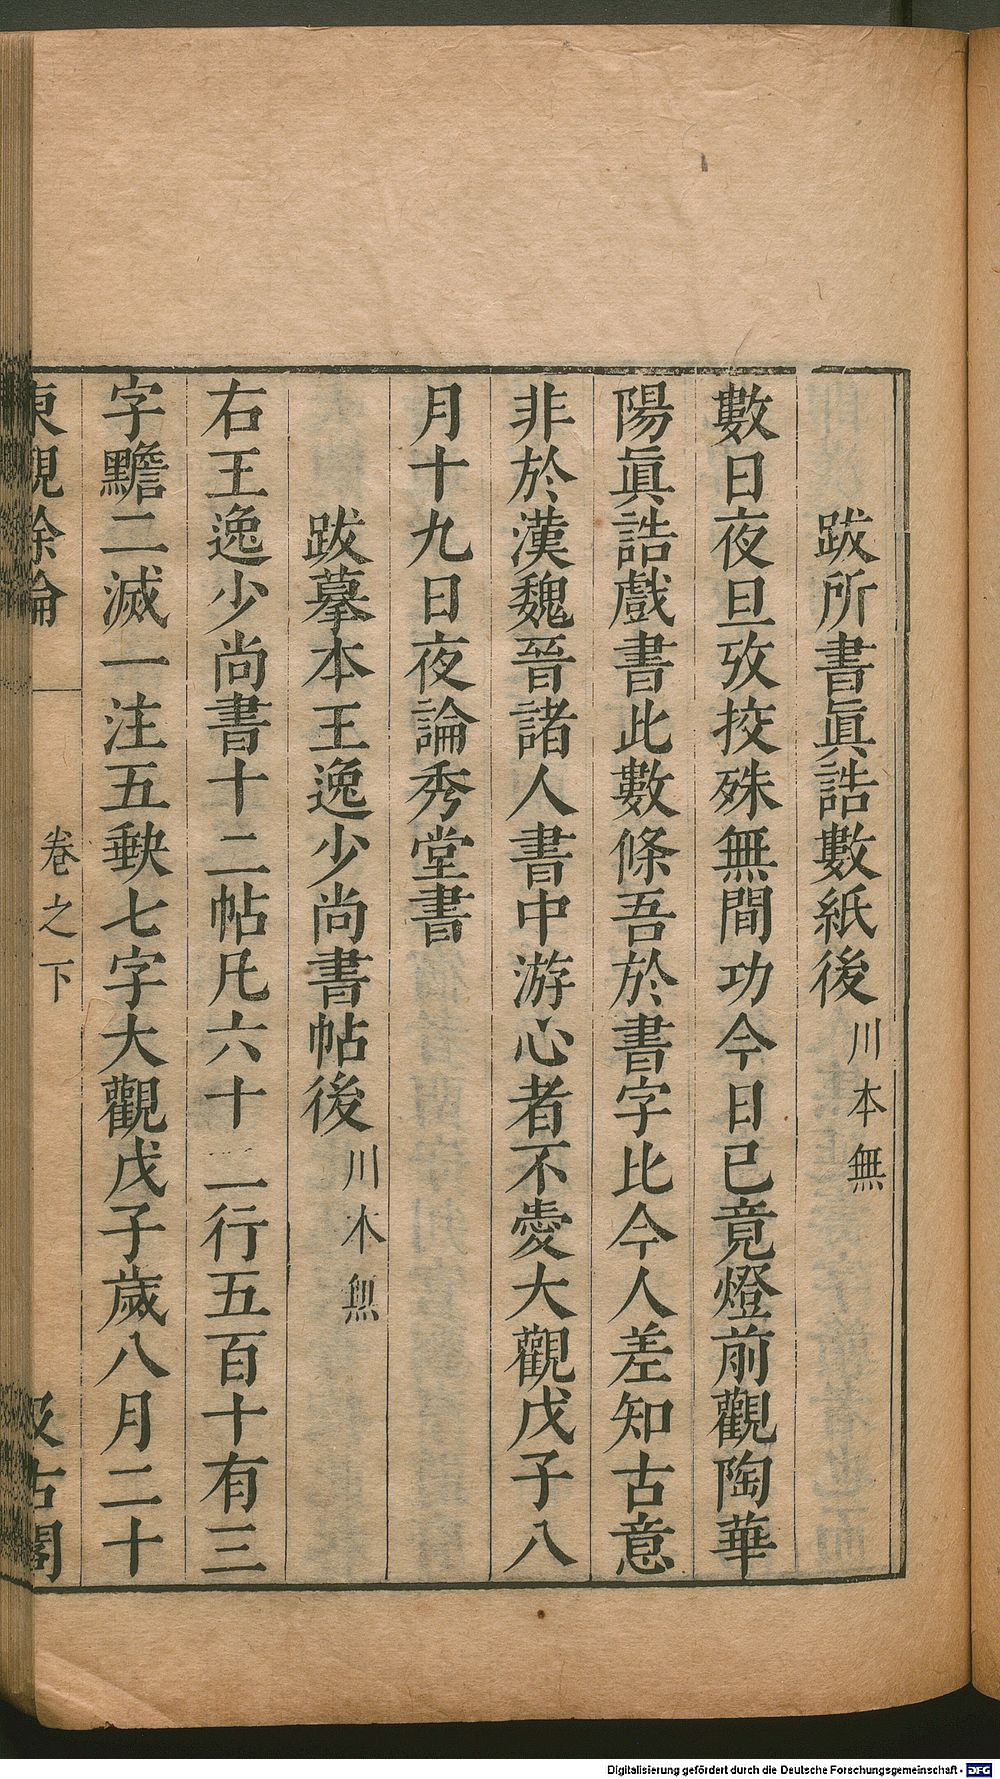 跋所書眞誥數紙後川本無
數日夜旦攷挍殊無間功今日已竟燈前觀陶華
陽眞誥戲書此數條吾於書字比今人差知古意
非於漢魏晉諸人書中游心者不愛大觀戊子八
月十九日夜論秀堂書
跋摹本王逸少尚書帖後川本無
右王逸少尚書十二帖凡六十二行五百十有三
字黵二滅一注五缺七字大觀戊子歲八月二十
東觀餘論
卷之下
汲古閣
Digitalisierung gefördert durch die Deutsche Forschungsgemeinschaft - DFG